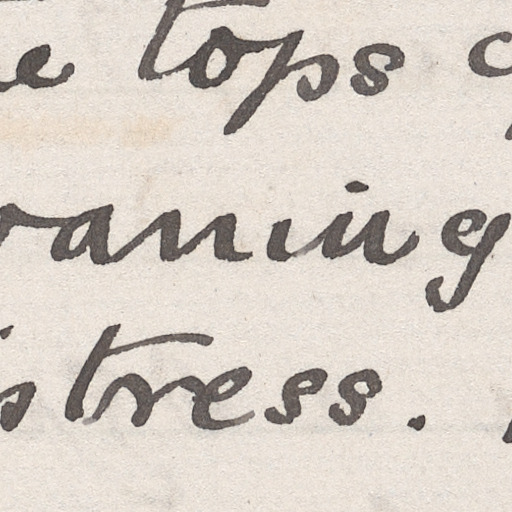 e tops o
oaning
stress.